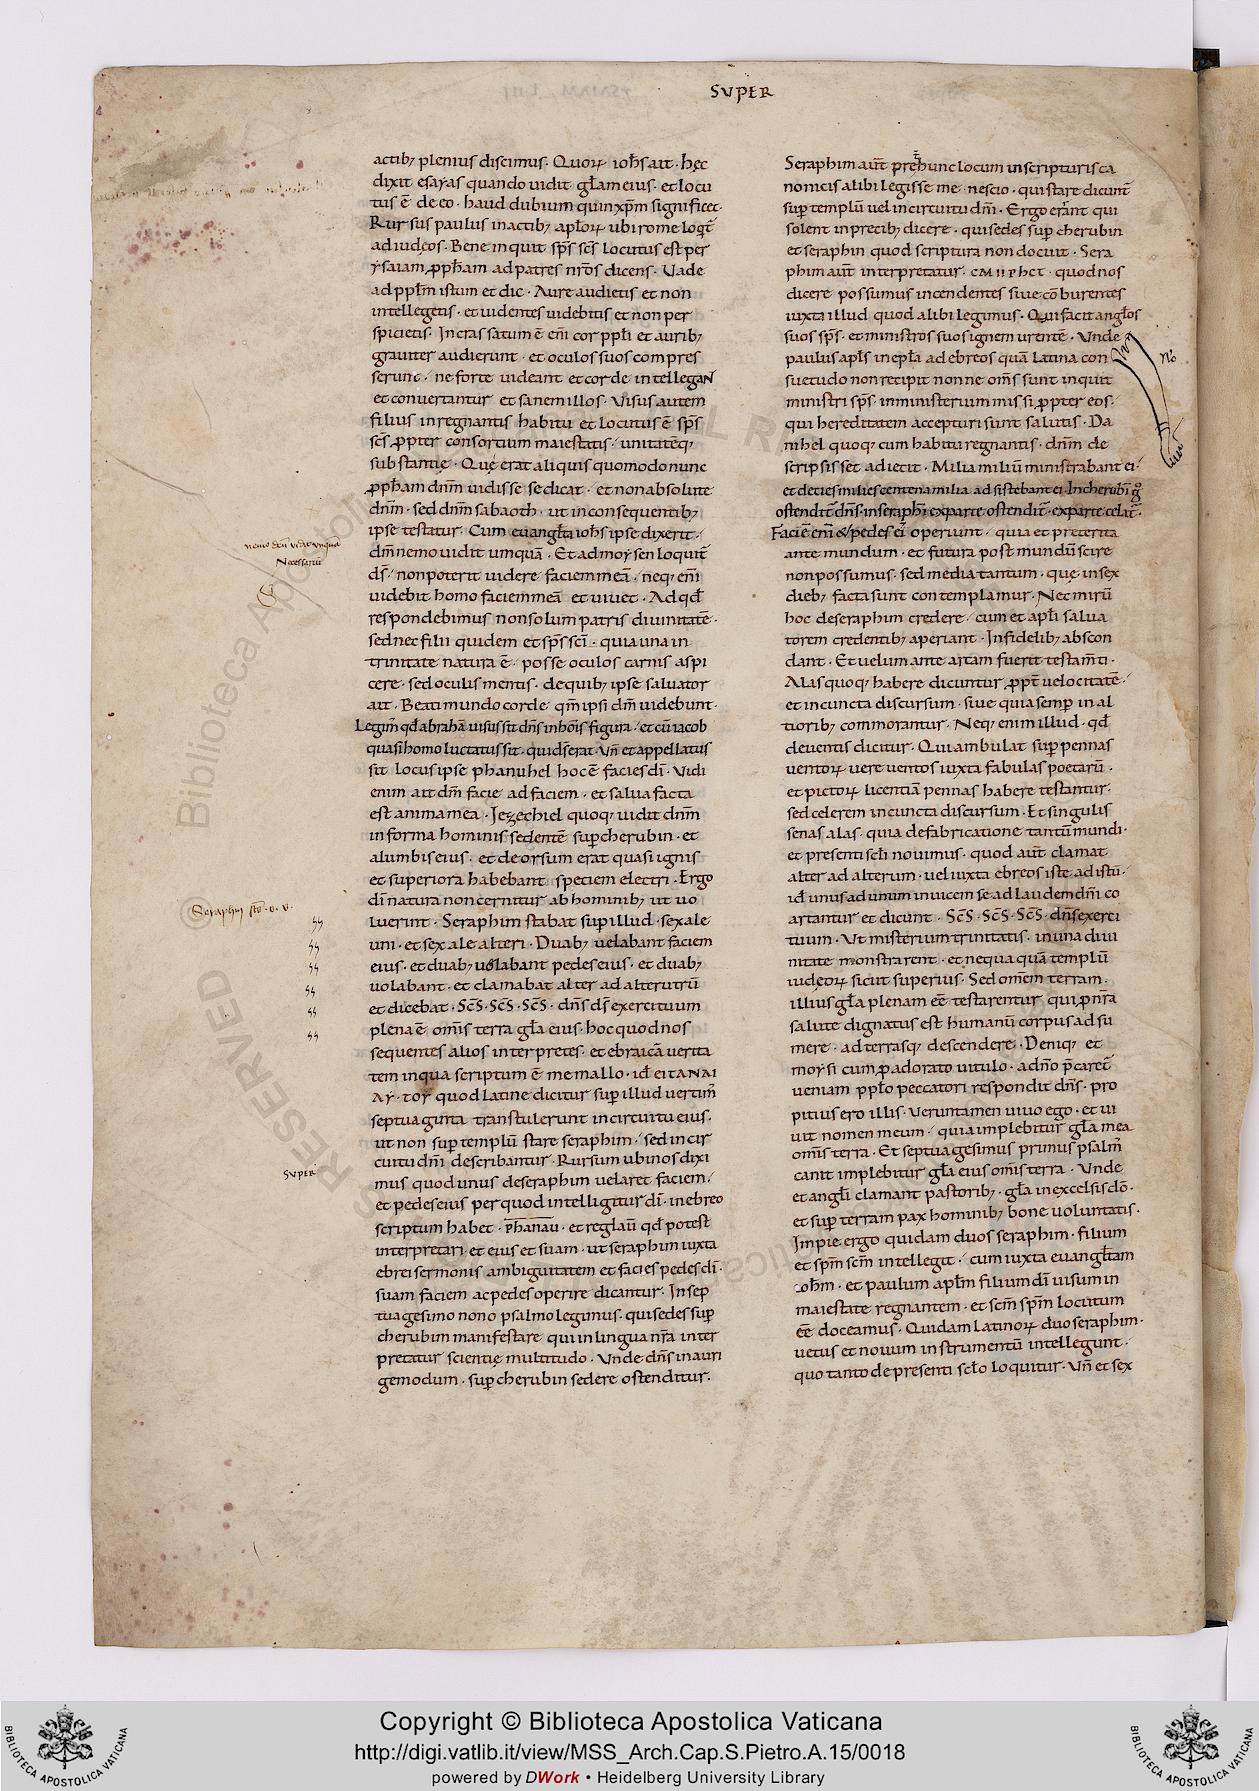 SUPER
actib; plenius discimus. Quoꝝ ioh̄s ait. hęc
dixit esaẏas quando uidit. gl̄am eius. et locu
tus ē de eo. haud dubium quin xp̄m significet.
Rursus paulus in actib; apl̄oꝝ ubi rome loq̄t̄
ad iudęos. Bene inquit sp̄s sc̄s locutus est per
ẏsaiam ꝓph̄am ad patres nr̄os dicens. Uade
ad ppl̄m istum et dic. Aure audietis et non
intellegetis. et uidentes uidebitis et non per
spicietis. Incrassatum ē eni̅ cor ppl̄i et aurib;
grauiter audierunt. et oculos suos compres
serunt. ne forte uideant et corde intellegant
et conuertantur et sanem illos. Visus autem
filius in regnantis habitu et locutus ē sp̄s
sc̄s ꝓpter consortium maiestatis. unitatēq;
substantię. Quęrat aliquis quomodo nunc
ꝓph̄am dn̄m uidisse se dicat. et non absolute
dn̄m. sed dn̄m sabaoth. ut in consequentib;
ipse testatur. Cum euangl̄ta ioh̄s ipse dixerit.
dm̄ nemo uidit umquā. Et ad moẏsen loquit̄
ds̄. non poterit uidere faciem meā. neq; eni̅
uidebit homo faciem meā et uiuet. Ad qd̄
respondebimus non solum patris diuinitatē.
sed nec filii quidem et sp̄s sc̄i. quia una in
trinitate natura ē. posse oculos carnis aspi
cere. sed oculis mentis. de quib; ipse saluator
ait. Beati mundo corde qm̄ ipsi dm̄ uidebunt.
Legim̄ qd̄ abrahā uisus sit dn̄s in hoīs figura. et cū iacob
quasi homo luctatus sit. qui ds̄ erat. Vn̄ et appellatus
sit locus ipse phanuhel hoc ē facies di̅. Vidi
enim ait dm̄ facie ad faciem. et salua facta
est anima mea. Iezechiel quoq; uidit dn̄m
in forma hominis sedentē sup̄ cherubin. et
a lumbis eius. et deorsum erat quasi ignis
et superiora habebant speciem electri. Ergo
di̅ natura non cernitur ab hominib; ut uo
luerint. Seraphim stabat sup illud. sex ale
uni. et sex ale alteri. Duab; uelabant faciem
eius. et duab; uelabant pedes eius. et duab;
uolabant. et clamabat alter ad alterutrū
et dicebat. Sc̄s. Sc̄s. Sc̄s. dn̄s ds̄ exercituum
plena ē omi̅s terra gl̄a eius. hoc quod nos
sequentes alios interpretes. et ebraicā uerita
tem in qua scriptum ē memallo. id̄ ΕΙΤΑΝΑΙ
ΑΥ. ΤΟΥ quod latine dicitur sup̄ illud uertim̄
septuaginta transtulerunt in circuitu eius.
ut non sup̄ templū stare seraphim. sed in cir
cuitu dn̄i describantur. Rursum ubi nos dixi
mus quod unus de seraphim uelaret faciem.
et pedes eius per quod intelligitur di̅. in ebreo
scriptum habet. phanau. et reglau qd̄ potest
interpretari. et eius et suam. ut seraphim iuxta
ebrei sermonis ambiguitatem et facies pedes di̅.
suam faciem ac pedes operire dicantur. In sep
tuagesimo nono psalmo legimus. qui sedes sup̄
cherubim manifestare qui in lingua nr̄a inter
pretatur scientię multitudo. Vnde dn̄s in auri
gę modum. sup̄ cherubin sedere ostenditur.
Seraphim aut̄ preter hunc locum in scripturis ca
nonicis alibi legisse me nescio. qui stare dicunt̄
sup̄ templū uel in circuitu dn̄i. Ergo errant qui
solent in precib; dicere. qui sedes sup̄ cherubin
et seraphin quod scriptura non docuit. Sera
phim aut̄ interpretatur. quod nos
dicere possumus incendentes siue cōburentes
iuxta illud quod alibi legimus. Qui facit angl̄os
suos sp̄s. et ministros suos ignem urentē. Vnde
paulus apl̄s in epl̄a ad ebreos quā latina con
suetudo non recipit nonne om̄s sunt inquit
ministri sp̄s. in ministerium missi ꝓpter eos.
qui hereditatem accepturi sunt salutis. Da
nihel quoq; cum habitu regnantis. dn̄m de
scripsisset adiecit. Milia miliū ministrabant ei.
et decies milies centena milia adsistebant ei. In cherubi̅ g̊
ostendit̄ dn̄s. in seraphi̅ ex parte ostendit̄. ex parte celat̄.
Faciē eni̅ & pedes ei᷒ operiunt. quia et preterita
ante mundum. et futura post mundū scire
non possumus. sed media tantum. quę in sex
dieb; facta sunt contemplamur. Nec mirū
hoc de seraphim credere. cum et apl̄i salua
torem credentib; aperiant. Infidelib; abscon
dant. Et uelum ante arcam fuerit testam̄ti.
Alas quoq; habere dicuntur ꝓpt̄ uelocitatē.
et in cuncta discursum. siue quia semp̄ in al
tiorib; commorantur. Neq; enim illud. qd̄
de uentis dicitur. Qui ambulat sup̄ pennas
uentoꝝ uere uentos iuxta fabulas poetarū.
et pictoꝝ licentiā pennas habere testantur.
sed celerem in cuncta discursum. Et singulis
senas alas. quia de fabricatione tantū mundi.
et presentis sc̄li nouimus. quod aut̄ clamat
alter ad alterum. uel iuxta ebreos iste ad istū.
id̄ unus ad unum inuicem se ad laudem dn̄i co
artantur et dicunt. Sc̄s. Sc̄s. Sc̄s. dn̄s exerci
tuum. Ut misterium trinitatis. in una diui
nitate monstrarent. et nequaquā templū
iudęoꝝ sicut superius. Sed omēm terram.
illius gl̄a plenam eē testarentur qui ꝓ nr̄a
salute dignatus est humanū corpus adsu
mere. ad terrasq; descendere. Deniq; et
moẏsi cum ꝓ adorato uitulo. a dn̄o p̄caret̄
ueniam ppl̄o peccatori respondit dn̄s. pro
pitius ero illis. ueruntamen uiuo ego. et ui
uit nomen meum. quia implebitur gl̄a mea
omi̅s terra. Et septuagesimus primus psalm̄
canit implebitur gl̄a eius omi̅s terra. Vnde
et angl̄i clamant pastorib;. gl̄a in excelsis dō.
et sup̄ terram pax hominib; bone uoluntatis.
Impie ergo quidam duos seraphim. filium
et spm̄ scm̄ intellegit. cum iuxta euangl̄tam
ioh̄m. et paulum apl̄m filium di̅ uisum in
maiestate regnantem. et scm̄ spm̄ locutum
eē doceamus. Quidam latinoꝝ duo seraphim.
uetus et nouum instrumentū intellegunt.
quo tanto de presenti sc̄lo loquitur. Vn̄ et sex
No
nemo deū vidit unquā
Necessariū
Seraphin
SUPER
Copyright © Biblioteca Apostolica Vaticana
http://digi.vatlib.it/view/MSS_Arch.Cap.S.Pietro.A.15/0018
powered by DWork • Heidelberg University Library
BIBLIOTECA APOSTOLICA VATICANA
BIBLIOTECA APOSTOLICA VATICANA